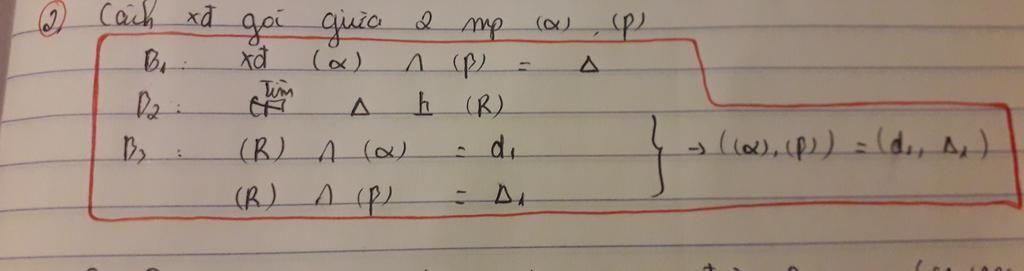 ② Cách xđ goí giữa 2 mp (α), (β)
B₁ : xđ (α) ∩ (β) = Δ
B₂ : Tìm Δ ⊥ (R)
B₃ : (R) ∩ (α) = d₁
(R) ∩ (β) = Δ₁
→ ((α), (β)) = (d₁, Δ₁)